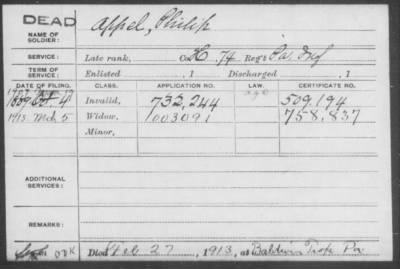 DEAD
NAME OF SOLDIER: Appel, Philip
SERVICE: Late rank, Co. H, 74 Reg't Pa. Inf
TERM OF SERVICE: Enlisted , 1 Discharged , 1
DATE OF FILING. CLASS. APPLICATION NO. LAW. CERTIFICATE NO.
1889 Oct. 4 Invalid, 732,244 age 509,194
1913. Mch 5 Widow, 1003091 758,837
Minor,
ADDITIONAL SERVICES:
REMARKS:
Died Feb 27, 1913, at Baldwin Twp Pa